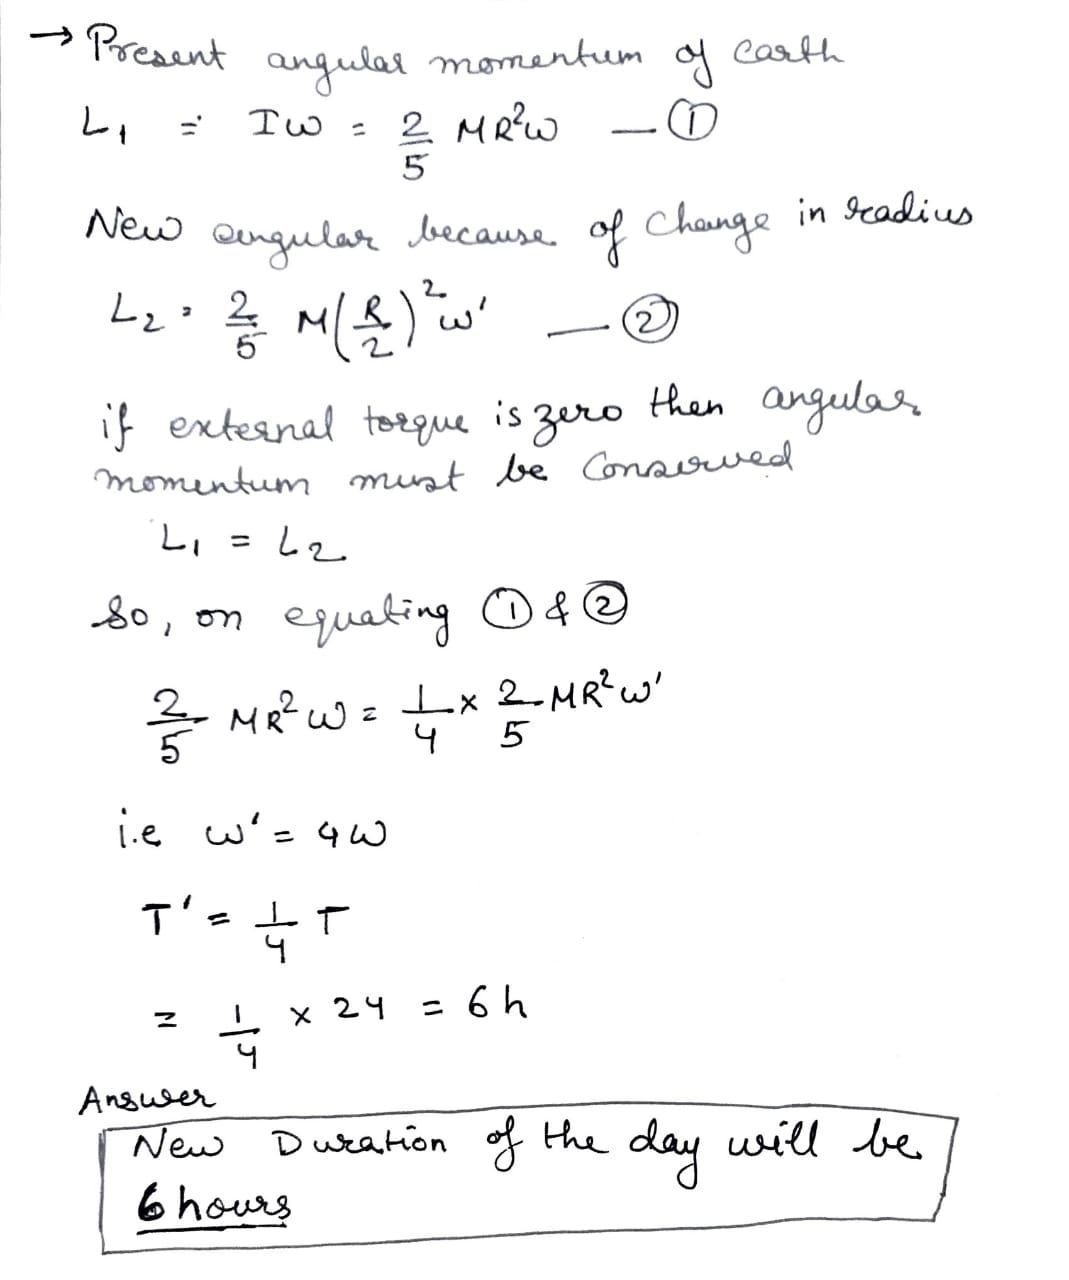 → Present angular momentum of earth
L₁ = Iω = 2/5 MR²ω — ①
New angular because of change in radius
L₂ = 2/5 M(R/2)²ω' — ②
if external torque is zero then angular
momentum must be conserved
L₁ = L₂
So, on equating ① & ②
2/5 MR²ω = 1/4 × 2/5 MR²ω'
i.e ω' = 4ω
T' = 1/4 T
= 1/4 × 24 = 6h
Answer
New Duration of the day will be
6 hours